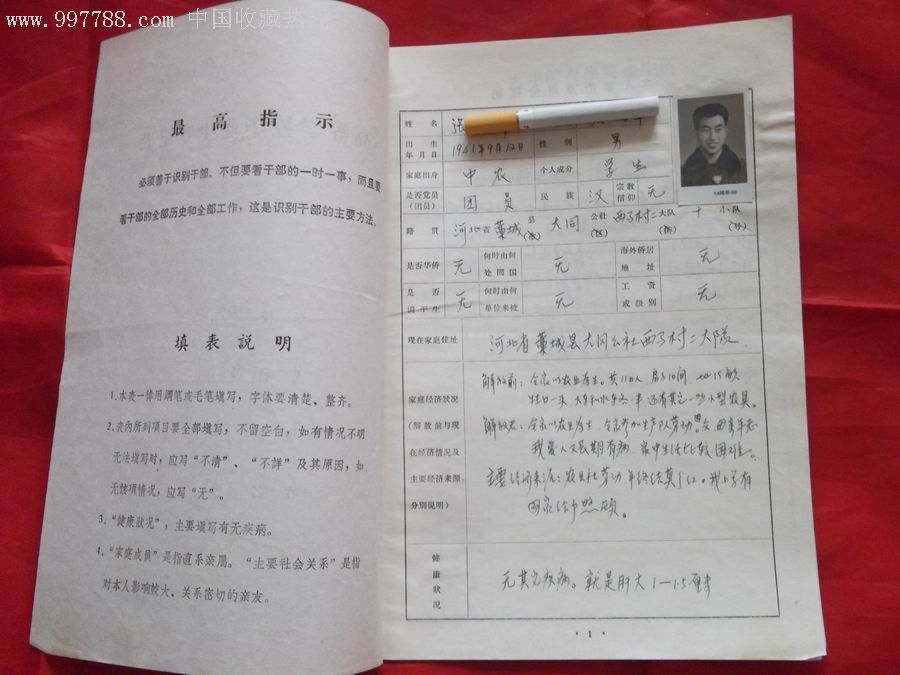 www.997788.com 中国收藏热线
最高指示
必须善于识别干部。不但要看干部的一时一事，而且要
看干部的全部历史和全部工作，这是识别干部的主要方法。
填表説明
1.本表一律用鋼笔或毛笔填写，字体要清楚、整齐。
2.表內所列項目要全部填写，不留空白，如有情况不明
无法填写时，应写“不清”、“不詳”及其原因，如
无該項情况，应写“无”。
3.“健康狀况”，主要填写有无疾病。
4.“家庭成員”是指直系亲属。“主要社会关系”是指
对本人影响較大、关系密切的亲友。
姓名 張
出生年月日 1941年9月12日 性別 男
家庭出身 中农 个人成分 学生
是否党员(团員) 团員 民族 汉 宗教信仰 无
籍貫 河北省藁城县(市) 大同公社(区) 西子村二大队(街) 十小队(号)
是否华侨 无 何时由何处回国 无 海外侨居地址 无
是否調干生 无 何时由何单位来校 无 工資或級別 无
現在家庭住址 河北省藁城县大同公社西子村二大隊
家庭經济狀况(解放前与現在經济情况及主要經济来源，分別說明)
解放前：全家以农业为生。共11口人，房子10间，地15亩
牲口一来，大车和水车各一半，还有其它一些小型农具。
解放后：全家以农业为生，全家参加生产队劳动。父母年老
我爱人又長期有病，家中生活比较困难。
主要经济来源：农业社劳动年终结算分红。我上学有
国家给予照顾。
健康狀况 无其它疾病。就是肝大1—1.5厘米
·1·